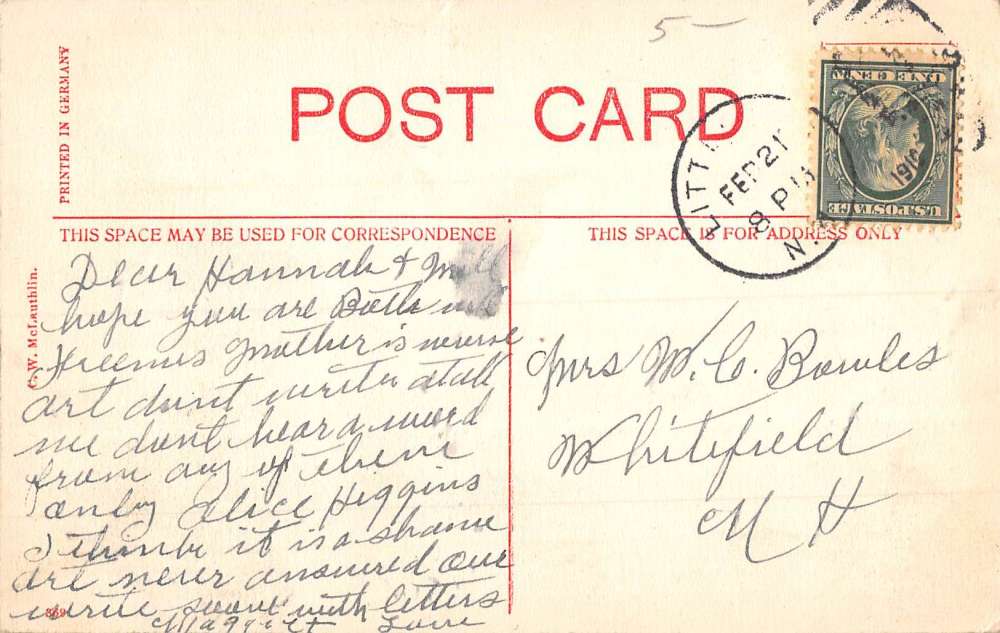 5-
PRINTED IN GERMANY
POST CARD
LITT
FEB 21
8 P
N.
1910
ONE CENT
U.S. POSTAGE
THIS SPACE MAY BE USED FOR CORRESPONDENCE
THIS SPACE IS FOR ADDRESS ONLY
C. W. McLauthlin.
Dear Hannah &
hope you are Both well
mother is worse
Art dont write atall
we dont hear a word
from any of them
only Alice Higgins
I think it is a shame
Art never answered our
write soon with letters
Love
Mrs W. C. Bowles
Whitefield
N H